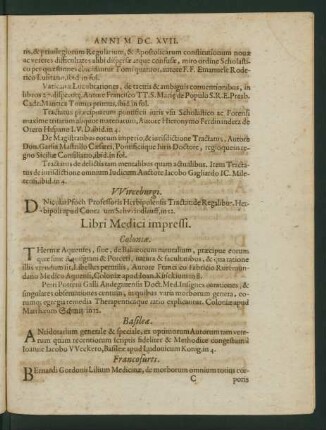 ANNI M DC. XVII.
ris, & privilegiorum Regularium, & Apostolicarum constitutionum nouæ
ac veteres difficultates alibi dispersæ atque confusæ, miro ordine Scholasti-
co per quæstiones elucidantur Tom. quatuor, autore F. F. Emanuele Rode-
rico Lusitano, ibid. in fol.
Variæ ac Locubrationes, de tertiis & ambiguis conventionibus, in
libros
Cade. Mantica Tomus primus, ibid. in fol.
Tractatus præceptorum iuris viri Scholastico ac Forensi
maxime Autore Hieronymo Ferdinandez de
Otero Hispano I. V. D. ibid. in 4.
De Magistratibus eorum imperio, & iurisdictione Tractatus, Autore
Don Garsia Mastrillo Pontificiique Iuris Doctore, regioque in re-
gno Siciliæ Consiliario, ibid. in fol.
Tractatus de delictis actibus. Item Tracta-
tus de iurisdictione omnium Iudicum Auctore Iacobo Gagliardo IC. Mile-
ibid. in 4.
VVirceburgi.
D. Professoris Herbipolensis Tractat. de Regalibus. Her-
bipoli apud in 12.
Libri Medici impressi.
Coloniæ.
THermæ Aquenses, sive, de Balneorum naturalium, præcipue eorum
quæ sunt Aquisgrani & Porceti, natura & facultatibus, & qua ratione
illis utendum sit. Libellus perutilis, Autore Francisco Fabricio Ruremun-
dano Medico Aquensi, Coloniæ apud Ioan. Kinckium in 8.
Petri Pomarii Galli Andegauensis Doct. Med. Insignes curationes, &
singulares observationes centum, in quibus varia morborum genera, eo-
rumque ratio explicatur. Coloniæ apud
Matthæum 1612.
Basileæ.
ANtidotarium generale & speciale, ex optimorum Autorum tam vete-
rum quam recentiorum scriptis fideliter & Methodice congestum à
Ioanne Iacobo VVeckero, Basileæ apud Ludovicum König, in 4.
Francofurti.
BErnardi Gordonii Lilium Medicinæ, de morborum omnium totius cor-
C poris